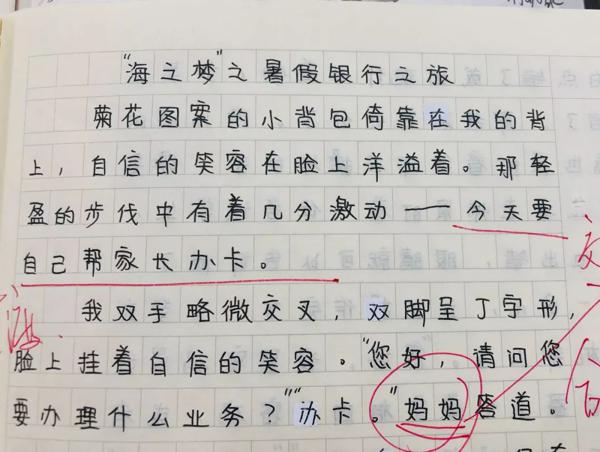 "海之梦"之暑假银行之旅
菊花图案的小背包倚靠在我的背
上，自信的笑容在脸上洋溢着。那轻
盈的步伐中有着几分激动——今天要
自己帮家长办卡。
我双手略微交叉，双脚呈丁字形，
脸上挂着自信的笑容。"您好"，请问您
要办理什么业务？""办卡。"妈妈答道。